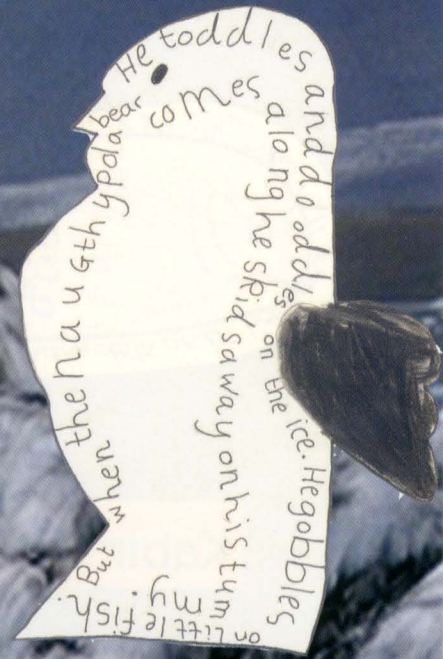 He toddles and dooddles on the ice. He gobbles
on Little fish.
But when the nauGthy pola bear
comes along he skids away on his tum
my.